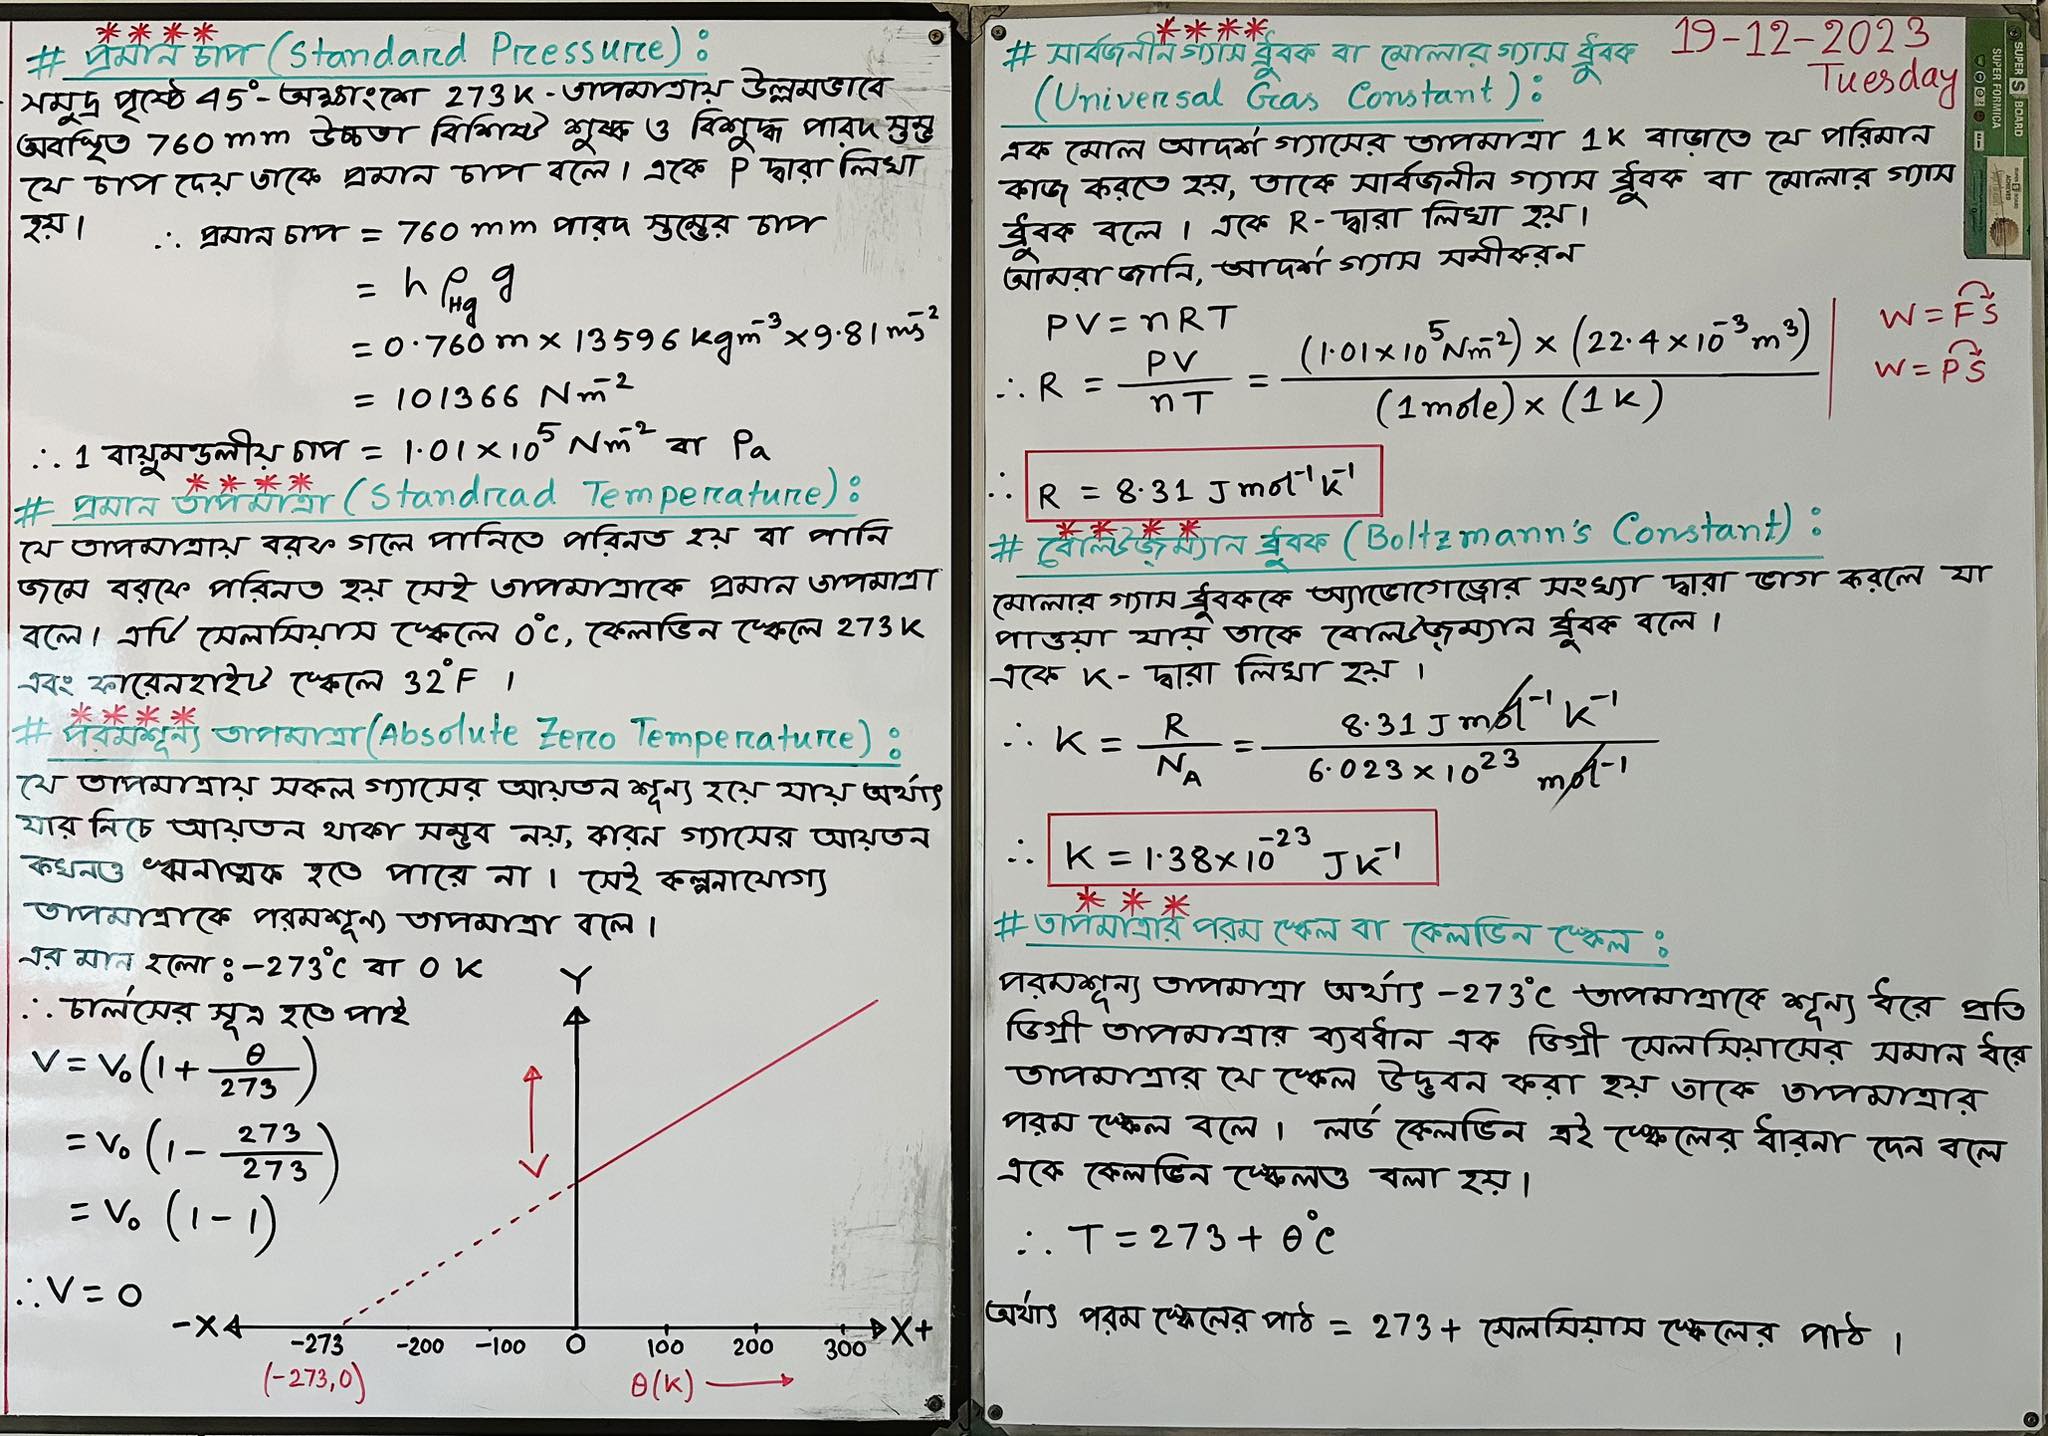 # প্রমান চাপ (Standard Pressure) :
সমুদ্র পৃষ্ঠে 45°- অক্ষাংশে 273K - তাপমাত্রায় উল্লম্বভাবে
অবস্থিত 760 mm উচ্চতা বিশিষ্ট শুষ্ক ও বিশুদ্ধ পারদ স্তম্ভ
যে চাপ দেয় তাকে প্রমান চাপ বলে। একে P দ্বারা লিখা
হয়। ∴ প্রমান চাপ = 760 mm পারদ স্তম্ভের চাপ
= h ρHg g
= 0.760 m × 13596 kgm⁻³ × 9.81 ms⁻²
= 101366 Nm⁻²
∴ 1 বায়ুমন্ডলীয় চাপ = 1.01 × 10⁵ Nm⁻² বা Pa
# প্রমান তাপমাত্রা (Standrad Temperature) :
যে তাপমাত্রায় বরফ গলে পানিতে পরিনত হয় বা পানি
জমে বরফে পরিনত হয় সেই তাপমাত্রাকে প্রমান তাপমাত্রা
বলে। এটি সেলসিয়াস স্কেলে 0°C, কেলভিন স্কেলে 273K
এবং ফারেনহাইট স্কেলে 32°F ।
# পরমশূন্য তাপমাত্রা (Absolute Zero Temperature) :
যে তাপমাত্রায় সকল গ্যাসের আয়তন শূন্য হয়ে যায় অর্থাৎ
যার নিচে আয়তন থাকা সম্ভব নয়, কারন গ্যাসের আয়তন
কখনও ঋনাত্মক হতে পারে না । সেই কল্পনাযোগ্য
তাপমাত্রাকে পরমশূন্য তাপমাত্রা বলে।
এর মান হলো : -273°C বা 0 K
∴ চার্লসের সূত্র হতে পাই
V = V₀ (1 + θ/273)
= V₀ (1 - 273/273)
= V₀ (1 - 1)
∴ V = 0
Y
-X
X+
-273 -200 -100 0 100 200 300
(-273,0)
θ(K) →
19-12-2023
Tuesday
SUPER S BOARD
SUPER FORMICA
# সার্বজনীন গ্যাস ধ্রুবক বা মোলার গ্যাস ধ্রুবক
(Universal Gas Constant) :
এক মোল আদর্শ গ্যাসের তাপমাত্রা 1K বাড়াতে যে পরিমান
কাজ করতে হয়, তাকে সার্বজনীন গ্যাস ধ্রুবক বা মোলার গ্যাস
ধ্রুবক বলে । একে R- দ্বারা লিখা হয়।
আমরা জানি, আদর্শ গ্যাস সমীকরন
PV = nRT
∴ R = PV/nT = (1.01×10⁵ Nm⁻²) × (22.4×10⁻³ m³) / (1 mole) × (1K)
W = FS
W = PS
∴ R = 8.31 J mol⁻¹ K⁻¹
# বোলটজ্ম্যান ধ্রুবক (Boltzmann's Constant) :
মোলার গ্যাস ধ্রুবককে অ্যাভোগেড্রোর সংখ্যা দ্বারা ভাগ করলে যা
পাওয়া যায় তাকে বোলটজ্ম্যান ধ্রুবক বলে ।
একে K- দ্বারা লিখা হয় ।
∴ K = R/N_A = 8.31 J mol⁻¹ K⁻¹ / 6.023×10²³ mol⁻¹
∴ K = 1.38×10⁻²³ J K⁻¹
# তাপমাত্রার পরম স্কেল বা কেলভিন স্কেল :
পরমশূন্য তাপমাত্রা অর্থাৎ -273°C তাপমাত্রাকে শূন্য ধরে প্রতি
ডিগ্রী তাপমাত্রার ব্যবধান এক ডিগ্রী সেলসিয়াসের সমান ধরে
তাপমাত্রার যে স্কেল উদ্ভবন করা হয় তাকে তাপমাত্রার
পরম স্কেল বলে । লর্ড কেলভিন এই স্কেলের ধারনা দেন বলে
একে কেলভিন স্কেলও বলা হয়।
∴ T = 273 + θ°C
অর্থাৎ পরম স্কেলের পাঠ = 273 + সেলসিয়াস স্কেলের পাঠ ।